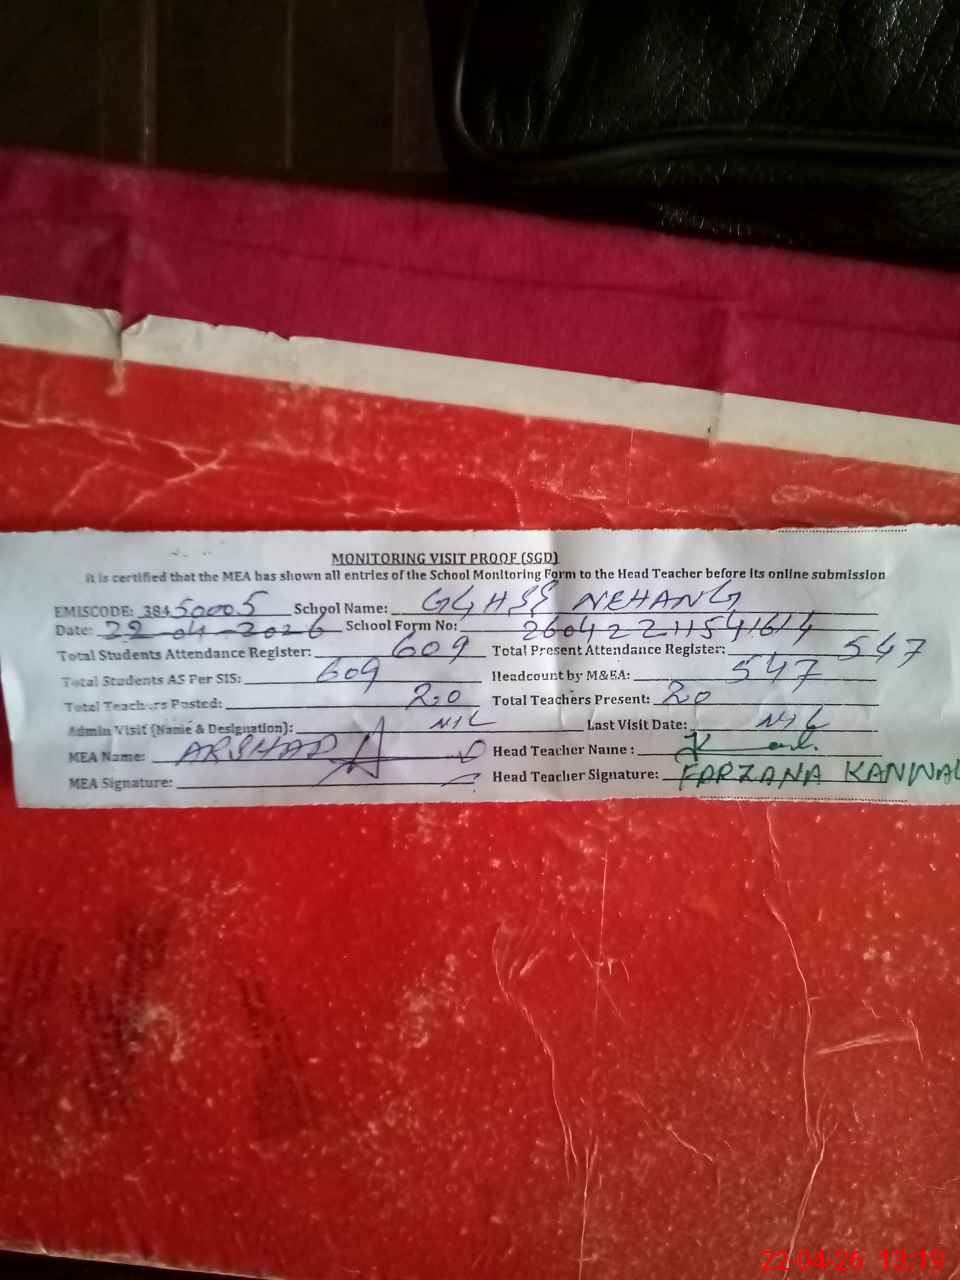 MONITORING VISIT PROOF (SGD)
it is certified that the MEA has shown all entries of the School Monitoring Form to the Head Teacher before its online submission
EMISCODE: 38450005 School Name: GGHSS NEHANG
Date: 22-04-2026 School Form No: 2604221154 1614
Total Students Attendance Register: 609 Total Present Attendance Register: 547
Total Students AS Per SIS: 609 Headcount by M&EA: 547
Total Teachers Posted: 20 Total Teachers Present: 20
Admin Visit (Name & Designation): NIL Last Visit Date: NIL
MEA Name: ARSHAD Head Teacher Name :
MEA Signature: Head Teacher Signature: FARZANA KANWAL
22-04-26 13:19